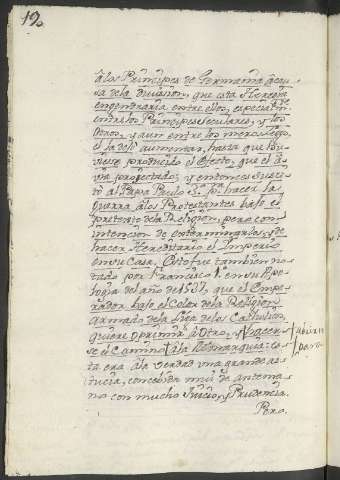 12
â los Principes de Germania â cau-
sa de la division, que esta Heregia
engendraria entre ellos, especialm.te
entre los Principes Seculares, y los
otros, y aun entre los mercs. luego,
el la debi aumentar, hasta que hu-
viese producido el efecto, que el a-
via projectado; y entonces suscit-
ó al Papa Paulo 3.º p.ª hacer la
Guerra â los Protestantes bajo el
pretexto de la Religion, pero con
intencion de exterminarlos, y de
hacer Hereditario el Imperio
en su Casa. Esto fue tambien no-
tado por Francisco 1.º en su Apo-
logia del año de 1537, que el Empe-
rador bajo el Color de la Religion
armado de la Liga de los Catholicos,
quiere oprimir â Otro, y hacer-
se el Camino â la Monarquia: es-
ta era â la verdad una grande as-
tucia, concebida mui de antema-
no con mucho Juicio, y Prudencia.
Pero.